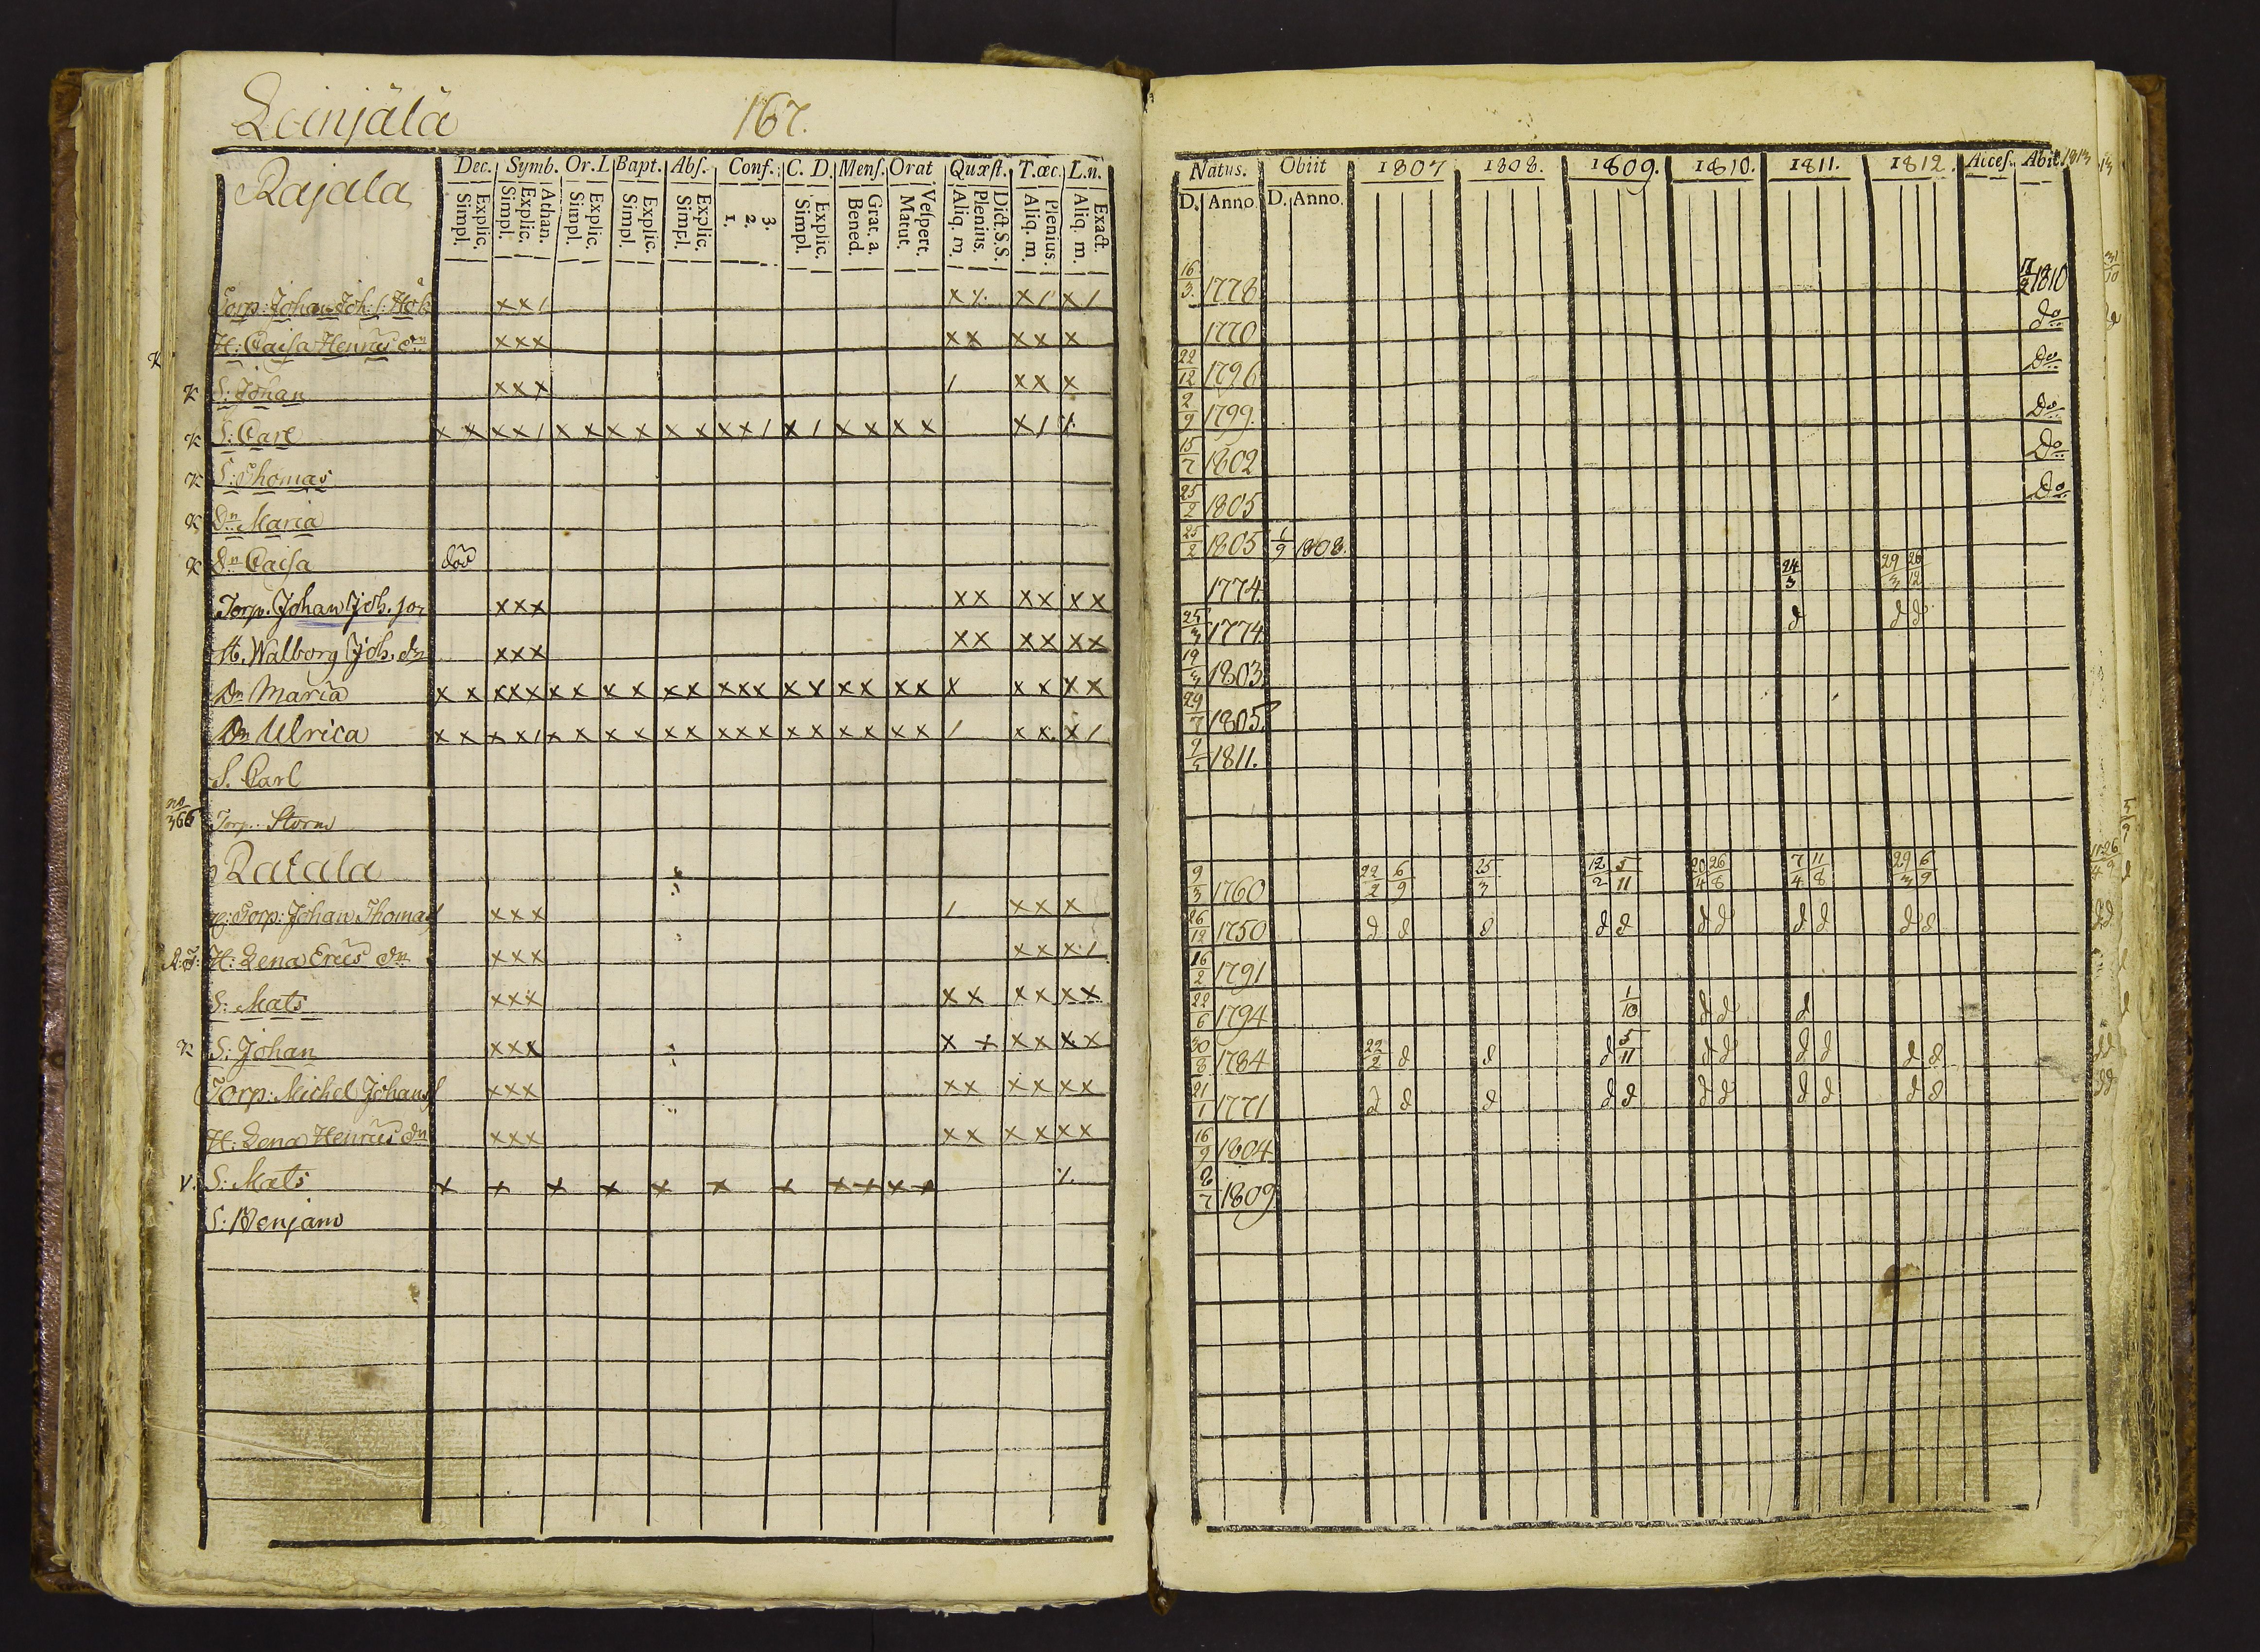 Leinjälä 167.
Rajala
Dec. Symb. Or. L Bapt. Abſ. Conf. C. D. Menſ. Orat Quæſt. T. œc. L.n.
Explic. Simpl. Athan. Explic. Simpl. Explic. Simpl. Explic. Simpl. Explic. Simpl. 3. 2. 1. Explic. Simpl. Grat. a. Bened. Veſpert. Matut. Dict. S. S. Plenius. Aliq. m. Plenius. Aliq. m. Exact. Aliq. m.
Torp: Johan Joh: s: Hök xx/ x/. x/ x/
H: Caisa Henrics dn xxx xx xx x
K S: Johan xxx / xx x
K S: Carl x x xx/ xx xx xx xx/ x/ xx xx x/ /.
K S: Thomas
K Dn Maria
K Dn Caisa död
Torp. Johan Joh. son xxx xx xx xx
H. Walborg Joh. dn xxx xx xx xx
Dn Maria x x xxx xx xx xx xxx xx xx xx x xx xx
Dn Ulrica x x xx/ xx xx xx xxx xx xx xx / xx x/
S. Carl
no 366 Torp. Storm
Ratala
Torp: Johan Thomas / xxx / xx x
H: Lena Erics dn xxx xx x/
S: Mats xxx xx xx xx
K S: Johan xxx x x xx xx
Torp: Michel Johans xxx xx xx xx
H: Lena Henrics dn xxx xx xx xx
V. S: Mats x x x x x x x xx xx /.
S: Benjam
Natus. Obiit 1807 1808. 1809. 1810. 1811. 1812. Acceſ. Abit. 1813
D. Anno D. Anno
16/3 1778 17/2 1810 31/10
1770 do d
22/12 1796 Do
2/9 1799. Do
15/7 1802 Do
25/2 1805 Do
25/2 1805 1/9 1808.
1774 24/3 29/3 26/12
25/3 1774 d d d
19/3 1803
29/7 1805
1811.
5/9
9/3 1760 22/2 6/9 25/3 12/2 5/11 20/4 26/8 7/4 11/8 29/3 6/9 11/4 26/9 d
26/12 1750 d d d d d d d d d d d d d
16/2 1791
22/6 1794 1/10 d d d d
30/8 1784 22/2 d d d 5/11 d d d d d d d d
21/1 1771 d d d d d d d d d d d d d
16/9 1804
8/7 1809